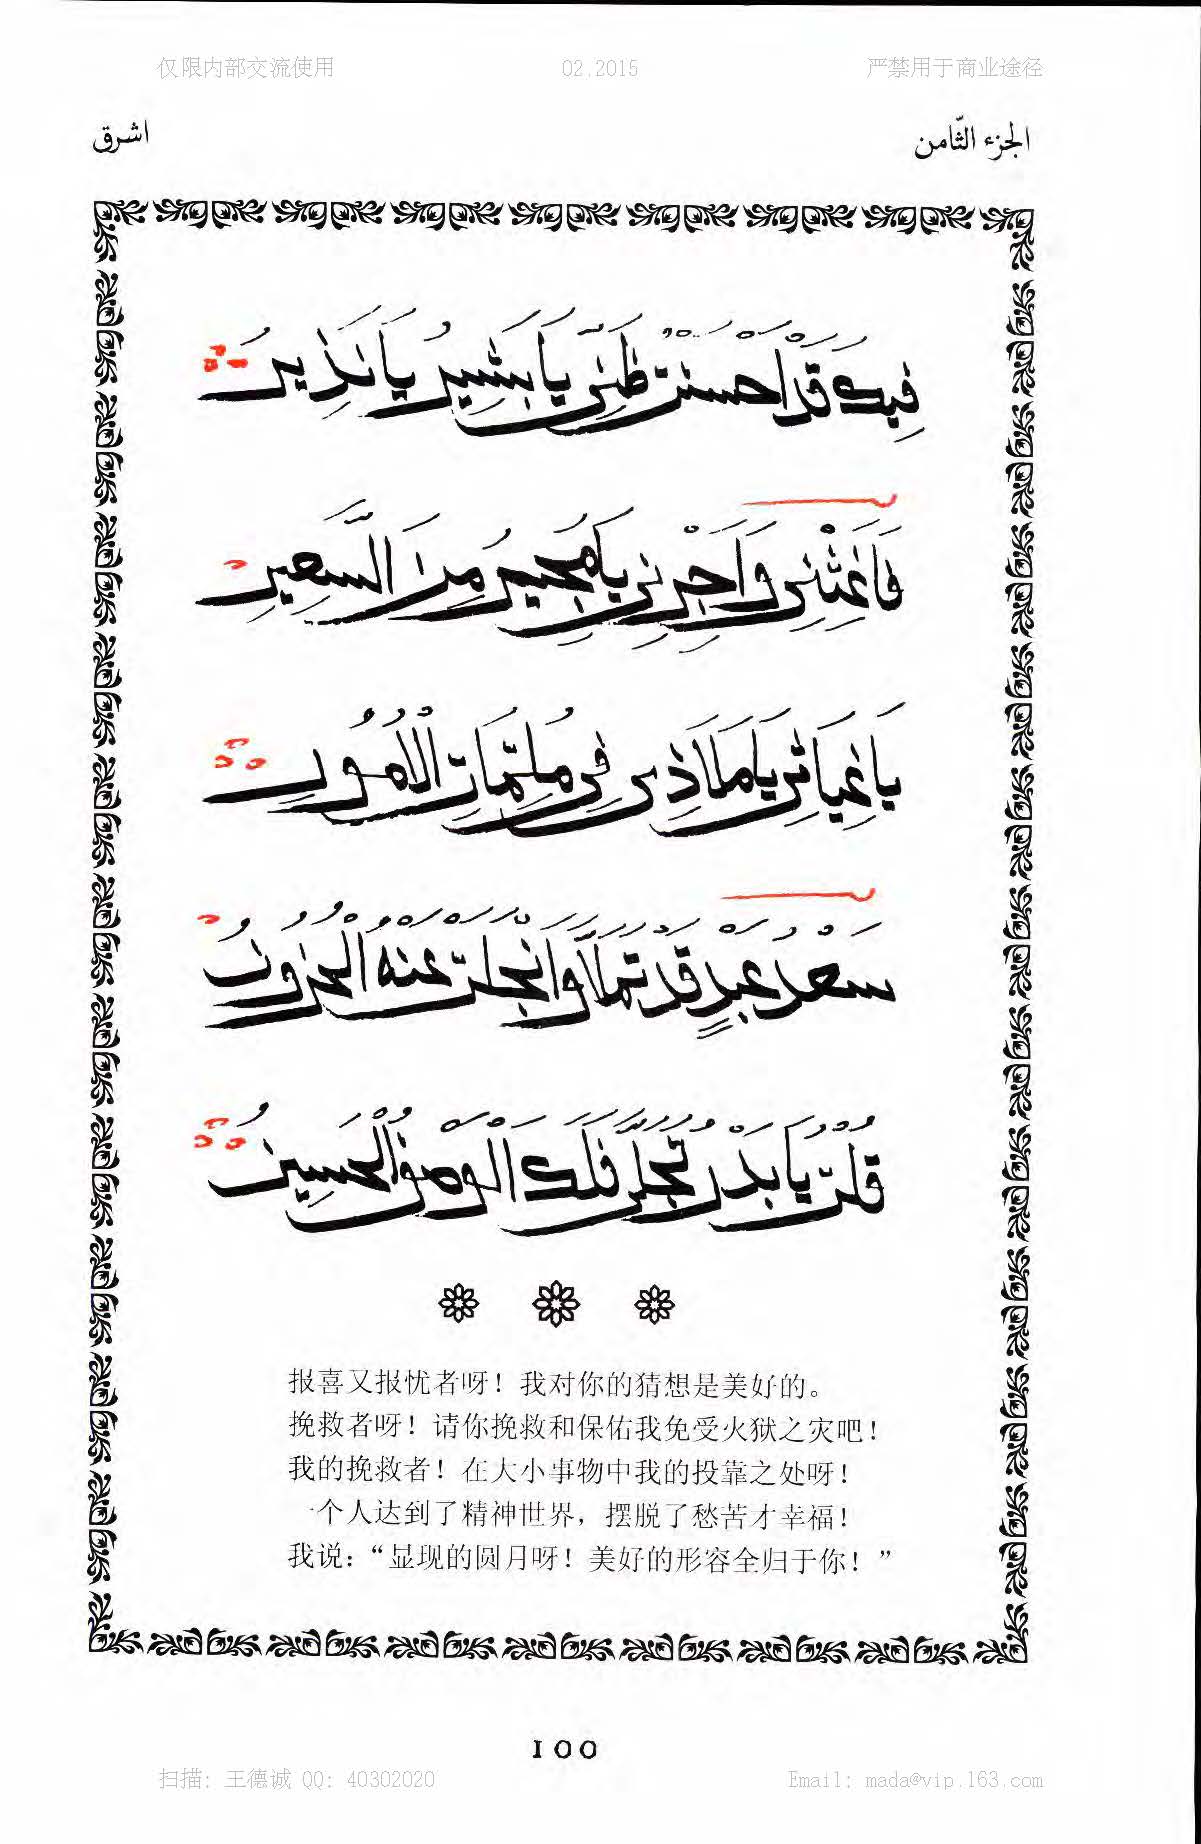 仅限内部交流使用 02.2015 严禁用于商业途径
الجزء الثّامن اشرق
فِيكَ قَدْ اَحْسَنْتُ ظَنِّي يَا بَشِيرُ يَا نَذِيرُ
فَاَغِثْنِي وَاَجِرْنِي يَا مُجِيرُ مِنَ السَّعِيرِ
يَا غِيَاثِي يَا مَلَاذِي فِي مُلِمَّاتِ الْاُمُورِ
سَعْدُ عَبْدٍ قَدْ تَمَلَّا وَانْجَلَى عَنْهُ الْحُزُونُ
قُلْتُ يَا بَدْرُ تَجَلَّى فَلَكَ الْوَصْفُ الْحَسِينُ
报喜又报忧者呀！我对你的猜想是美好的。
挽救者呀！请你挽救和保佑我免受火狱之灾吧！
我的挽救者！在大小事物中我的投靠之处呀！
一个人达到了精神世界，摆脱了愁苦才幸福！
我说：“显现的圆月呀！美好的形容全归于你！”
100
扫描: 王德诚 QQ: 40302020 Email: mada@vip.163.com